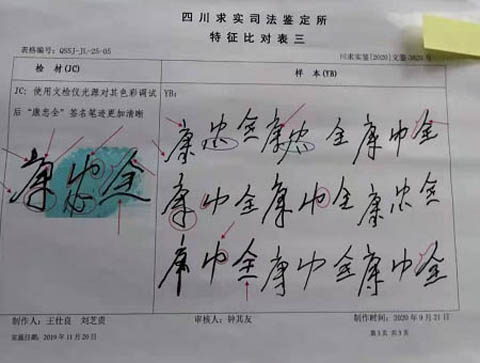 四川求实司法鉴定所
特征比对表三
表格编号：QSSJ-JL-25-05
川求实鉴[2020]文鉴3820号
检 材(JC)
样 本(YB)
JC：使用文检仪光源对其色彩调试后“康忠全”签名笔迹更加清晰
YB：
康忠全
康忠全 康忠全 康中全
康中全 康中全 康忠全
康中全 康中全 康中全
制作人：王仕良 刘芝贵
审核人：钟其友
制作时间：2020年9月21日
实施日期：2019年11月20日
第3页 共3页